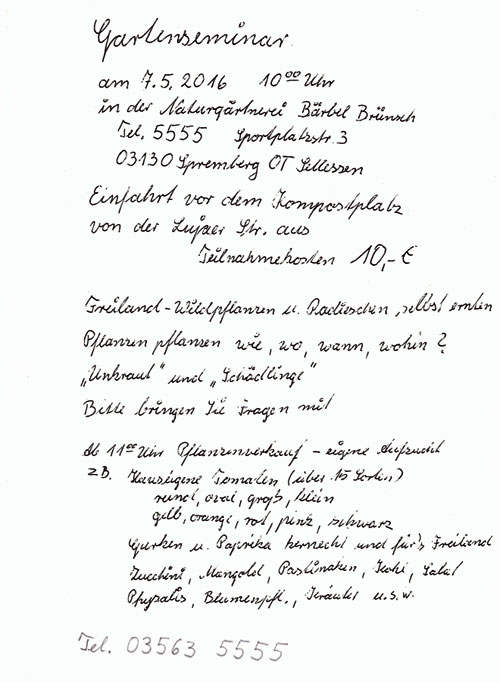 Gartenseminar
am 7.5.2016 10⁰⁰ Uhr
in der Naturgärtnerei Bärbel Brünsch
Tel. 5555 Sportplatzstr. 3
03130 Spremberg OT Sellessen
Einfahrt vor dem Kompostplatz
von der Lujaer Str. aus
Teilnahmekosten 10,- €
Freiland-Wildpflanzen u. Radieschen, selbst ernten
Pflanzen pflanzen wie, wo, wann, wohin?
„Unkraut" und „Schädlinge"
Bitte bringen Sie Fragen mit
Ab 11⁰⁰ Uhr Pflanzenverkauf - eigene Aufzucht
z.B. Tomaten (über 15 Sorten)
rund, oval, groß, klein
gelb, orange, rot, pink, schwarz
Gurken u. Paprika und für's Freiland
Zucchini, Mangold, Pastinaken, Salat
Physalis, Blumenpfl., Kräuter u.s.w.
Tel. 03563 5555